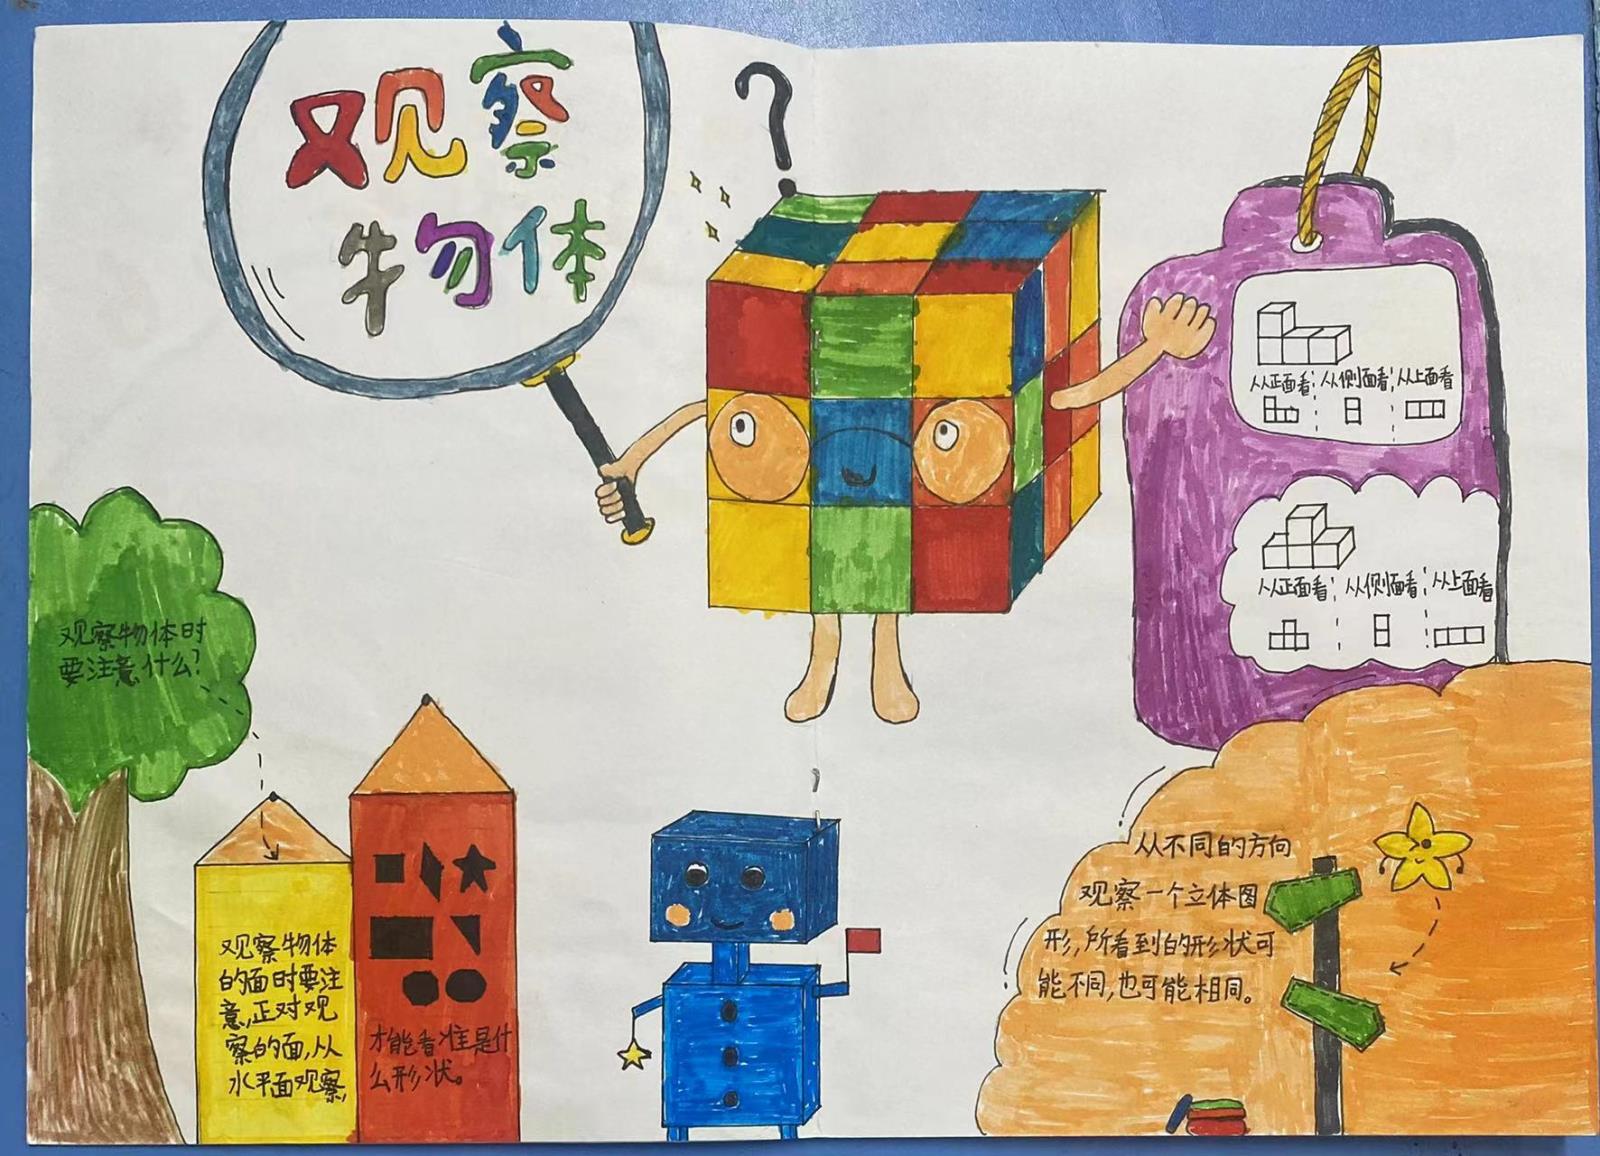 观察
物体
从正面看 从侧面看 从上面看
从正面看 从侧面看 从上面看
观察物体时
要注意什么?
观察物体
的面时要注
意,正对观
察的面,从
水平面观察,
才能看准是什
么形状。
从不同的方向
观察一个立体图
形,所看到的形状可
能不同,也可能相同。